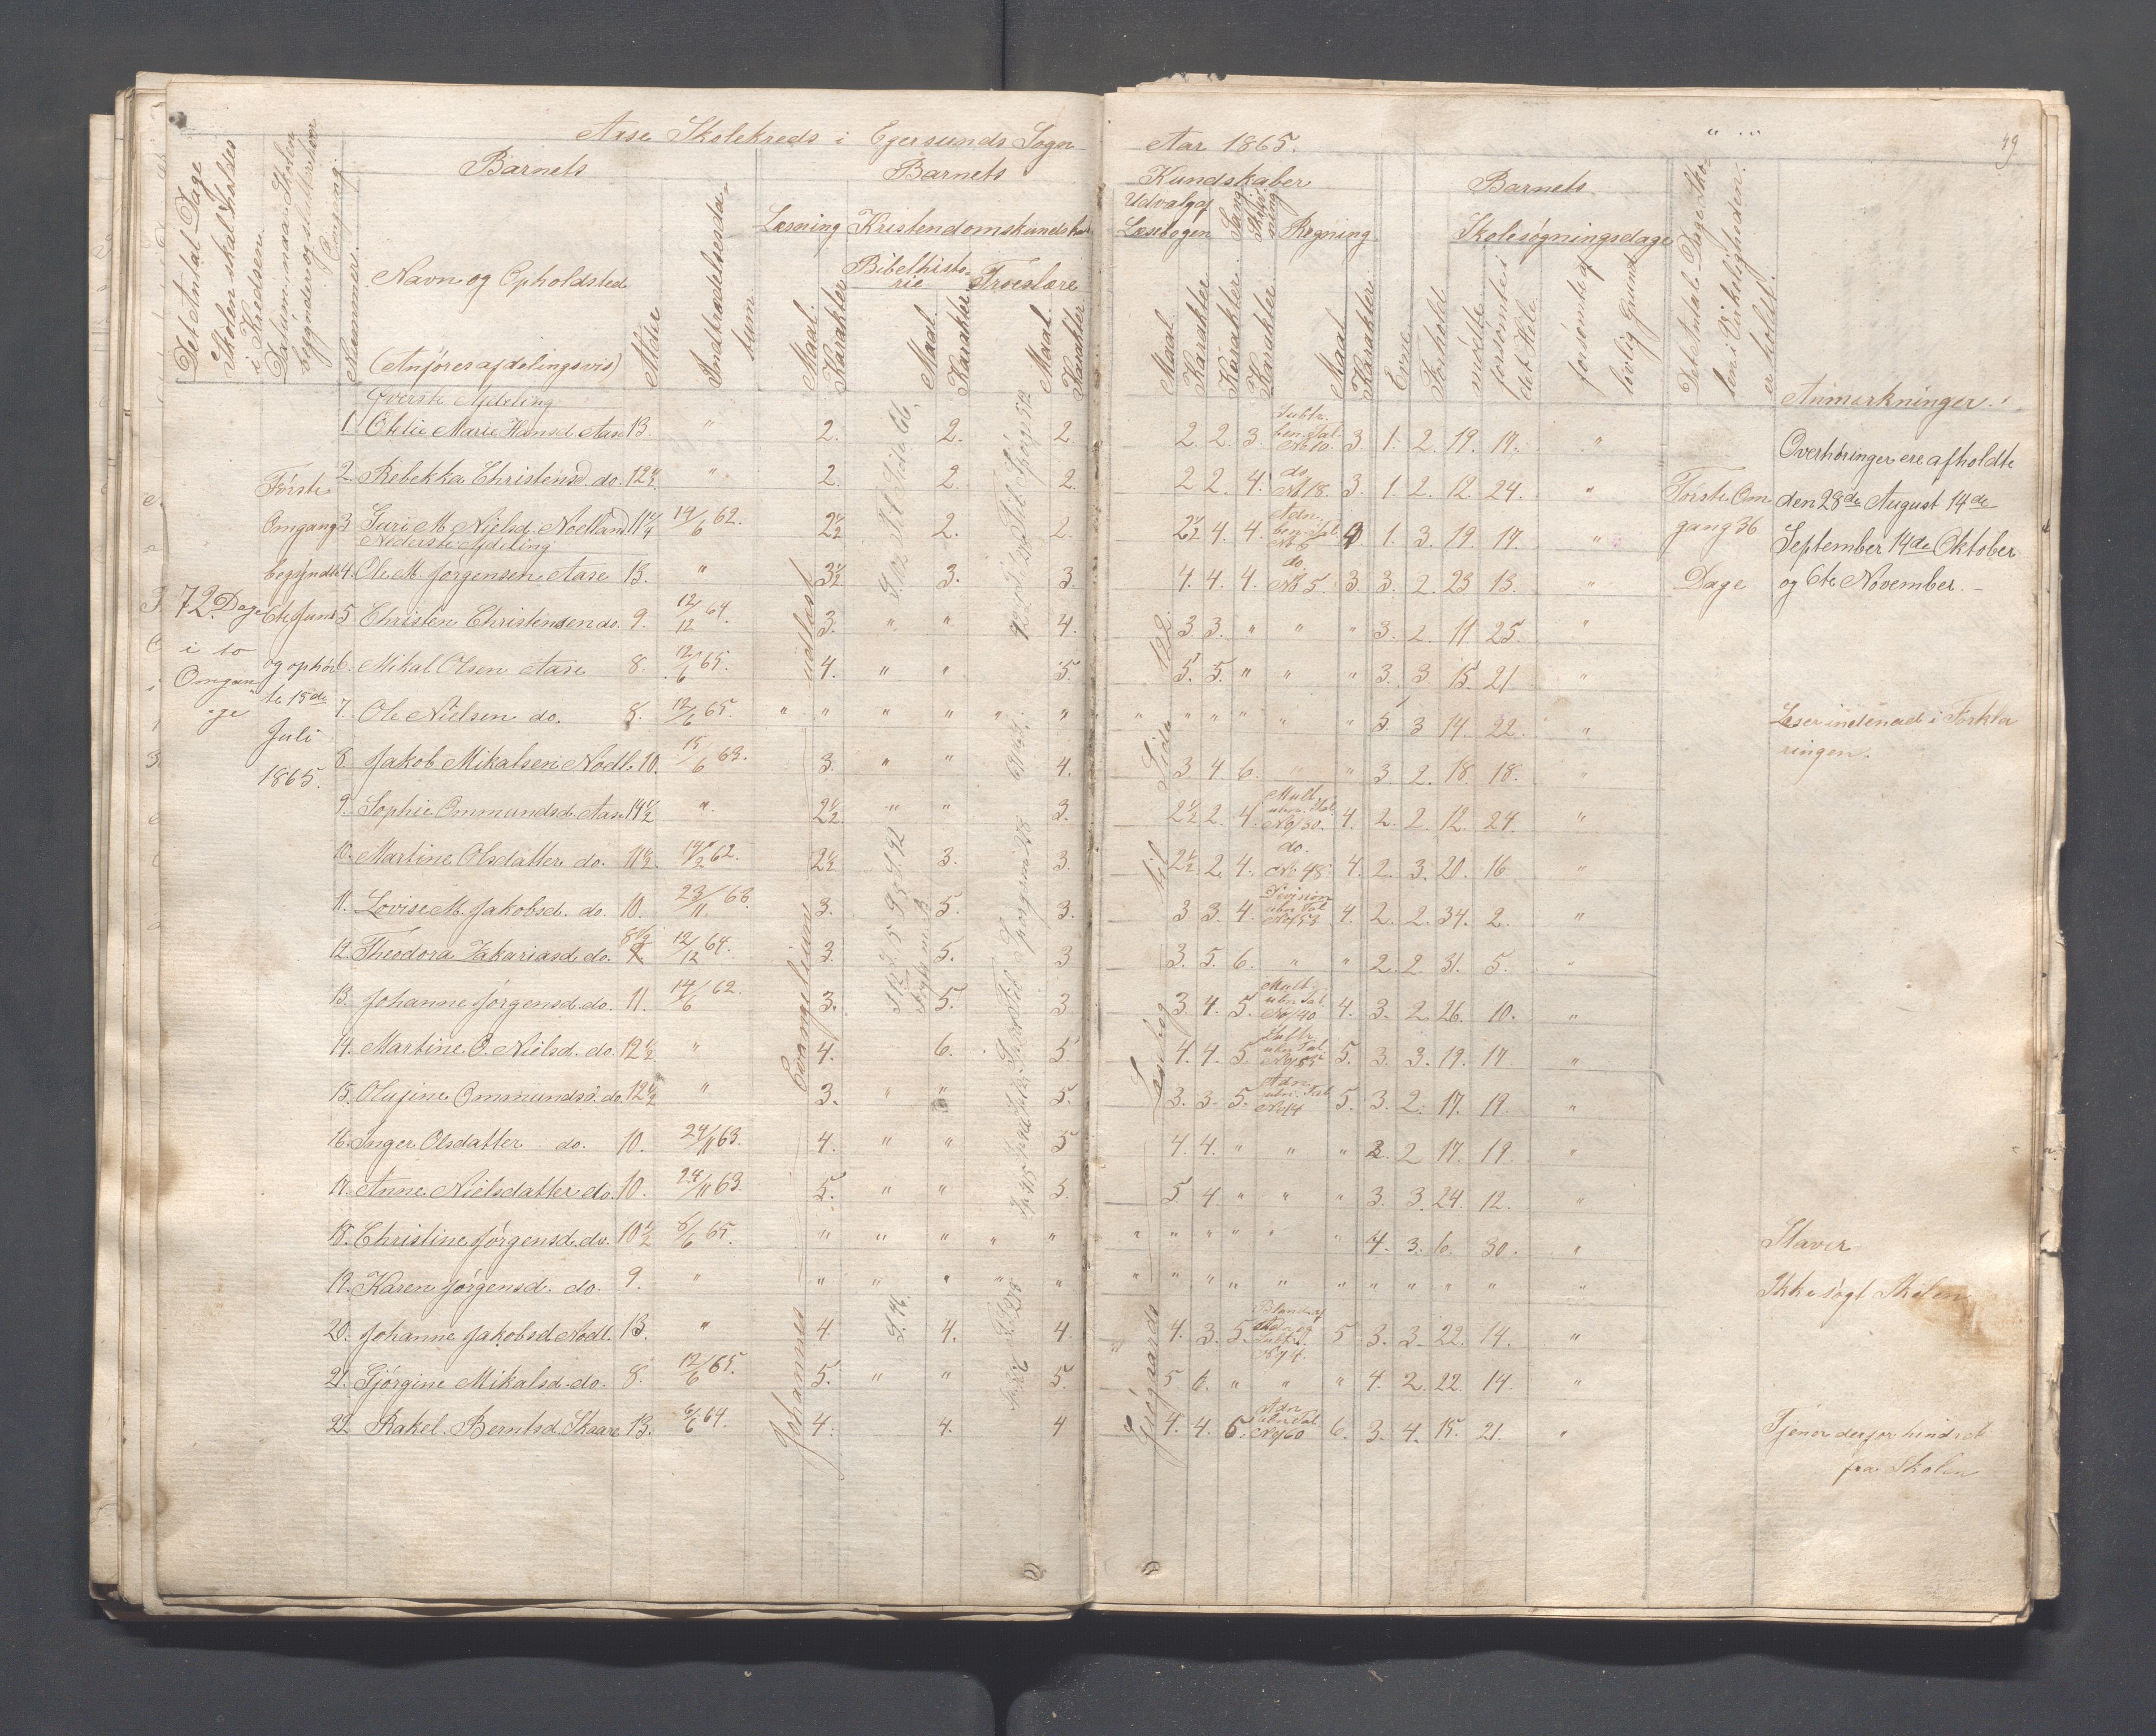 Aase Skolekreds i Egersunds Sogn Aar 1865. 49
Det Antal Dage Skolen skal holdes i Kredsen
Barnets
Barnets
Kundskaber
Barnets
Nummer
Navn og Opholdsted
(Anføres afdelingsvis)
Alder
Indtrædelsesdatum
Læsning
Maal
Karakter
Kristendomskundskab
Bibelhistorie
Maal
Karakter
Troeslære
Maal
Karakter
Udvalg af Læsebogen
Maal
Karakter
Sang
Karakter
Skrivning
Karakter
Regning
Maal
Karakter
Evne
Forhold
Skolesøgningsdage
mødte
forsømte i det Hele
forsømte af lovlig Grund
Det Antal Dage Skolen i Virkeligheden er holdt
Anmærkninger
Øverste Afdeling
1. Otilie Marie Hansd. Aase 13. " 2. 2. 2. 2. 2. 3. Subtr. ben. Tal No 10. 3. 1. 2. 19. 17. "
2. Rebekka Christensd. do. 12 1/2 " 2. 2. 2. 2. 2. 4. do No 18. 3. 1. 2. 12. 24. "
3 Juri M. Nielsd. Nodland 11 1/4 14/6 62. 2 1/2 2. 2. 2 1/2 4. 4. Adn. ben. Tal No 5 1. 3. 19. 17. "
Nederste Afdeling
4. Ole M. Jørgensen Aase 13. " 3 1/2 3. 3. 4. 4. 4. do. No 5. 3. 3. 2. 23 13. "
5 Christen Christensen do. 9. 12/12 64. 3. " " 4. 3. 3. " " " 3. 2. 11 25. "
6. Mikal Olsen Aase 8. 12/6 65. 4. " " 5. 5. 5. " " " 3. 3. 15. 21 "
7. Ole Nielsen do. 8. 12/6 65. " " " " " " " " " " " " 5. 3 14. 22. "
8. Jakob Mikalsen Nodl. 10. 15/6 63. 3. " " 4. 3. 4. 6. " " 3. 2. 18. 18. "
9. Sophie Ommundsd. Aase 14 1/2 " 2 1/2 " " 3. 2 1/2 2. 4. Mult. ubn. Tal No 30. 4. 2. 2. 12. 24. "
10. Martine Olsdatter do. 11 1/2 2 1/2 3. 3. 2 1/2 2. 4. do. No 48. 4. 2. 3. 20. 16 "
11. Lovise M. Jakobsd. do. 10. 23/11 63. 3. 5. 3. 3 3. 4. Division ubn. Tal No 53 4. 2. 2. 34. 2. "
12. Theodora Zakariasd. do. 8 1/2 12/12 64. 3. 5. 3 3. 5. 6. " " 2. 2. 31. 5. "
13. Johanne Jørgensd. do. 11. 14/6 62. 3. 5. 3 3 4. 5. Mult. ubn. Tal No 40 4. 3. 2. 26. 10. "
14. Martine O. Nielsd. do. 12 1/2 " 4. 6. 5. 4. 4. 5. Subtr. ubn. Tal 5. 3. 3. 19. 17 "
15. Olufine Ommundsd. do. 12 1/2 " 3. " " 5. 3. 3. 5. Adn. ubn. Tal No 14 5. 3. 2. 17. 19. "
16. Inger Olsdatter do. 10. 24/11 63. 4. " " 5 4. 4. " " " 2. 2 17. 19. "
17. Anne Nielsdatter do. 10. 24/11 63. 5. " " 5. 5. 4. " " " 3. 3. 24. 12. "
18. Christine Jørgensd. do. 10 1/2 6/6 65. " " " " " " " " " " " 4. 3. 6. 30. "
19. Karen Jørgensd. do. 9. " " " " " " " " " " " " " " " " "
20. Johanne Jakobsd. Nodl. 13. " 4. 4. 4. 4. 3. 5. Bland. af Adn. og Subtr. No 74. 5 3. 3. 22. 14. "
21. Gjørgine Mikalsd. do. 8. 12/6 65. 5. " " 5. 5. 6. " " " 4. 2. 22. 14. "
22 Rakel Berntsd. Skaare 13. 6/6 64. 4. 4. 4 4. 4. 6. Adn. ubn. Tal No 60 6. 3. 4. 15. 21. "
72 Dage
i to
Omgange
Første
Omgang
begyndte
6te Juni
og ophørte 15de
Juli
1865.
Johannes Evangelium udlæst
Læsebog til Side 132.
Første Omgang 36
Dage
Overhøringer ere afholdte
den 28de August 14de
September 14de Oktober
og 6te November.
Læser indenad i Forklaringen.
Staver
Ikke søgt Skolen
Tjener derfor hindret
fra Skolen